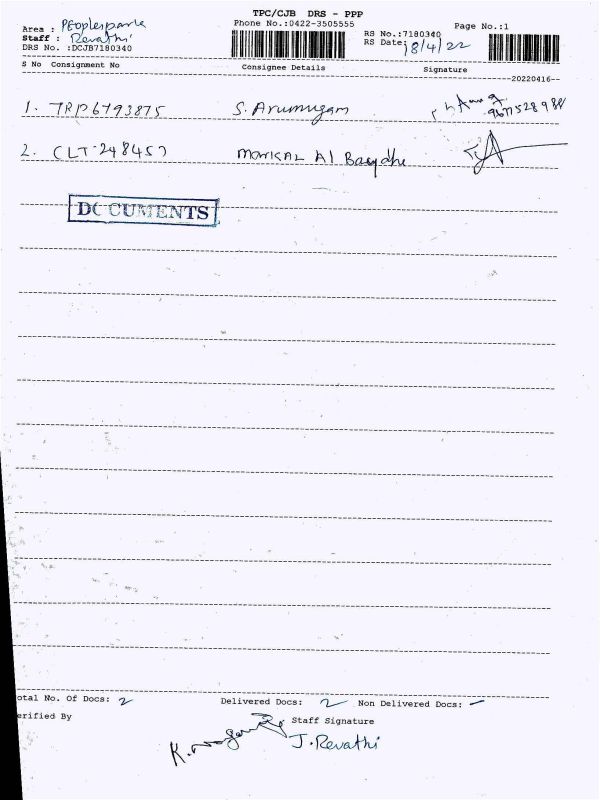 TPC/CJB DRS - PPP
Area : Peoplespark Phone No.:0422-3505555 Page No.:1
Staff : Revathi RS No.:7180340
DRS No. :DCJB7180340 RS Date: 18/4/22
S No Consignment No Consignee Details Signature
20220416
1. TRP6793875 S. Arumugam
2. CLT 248457 Al
DOCUMENTS
otal No. Of Docs: 2 Delivered Docs: 2 Non Delivered Docs: -
erified By Staff Signature
J. Revathi